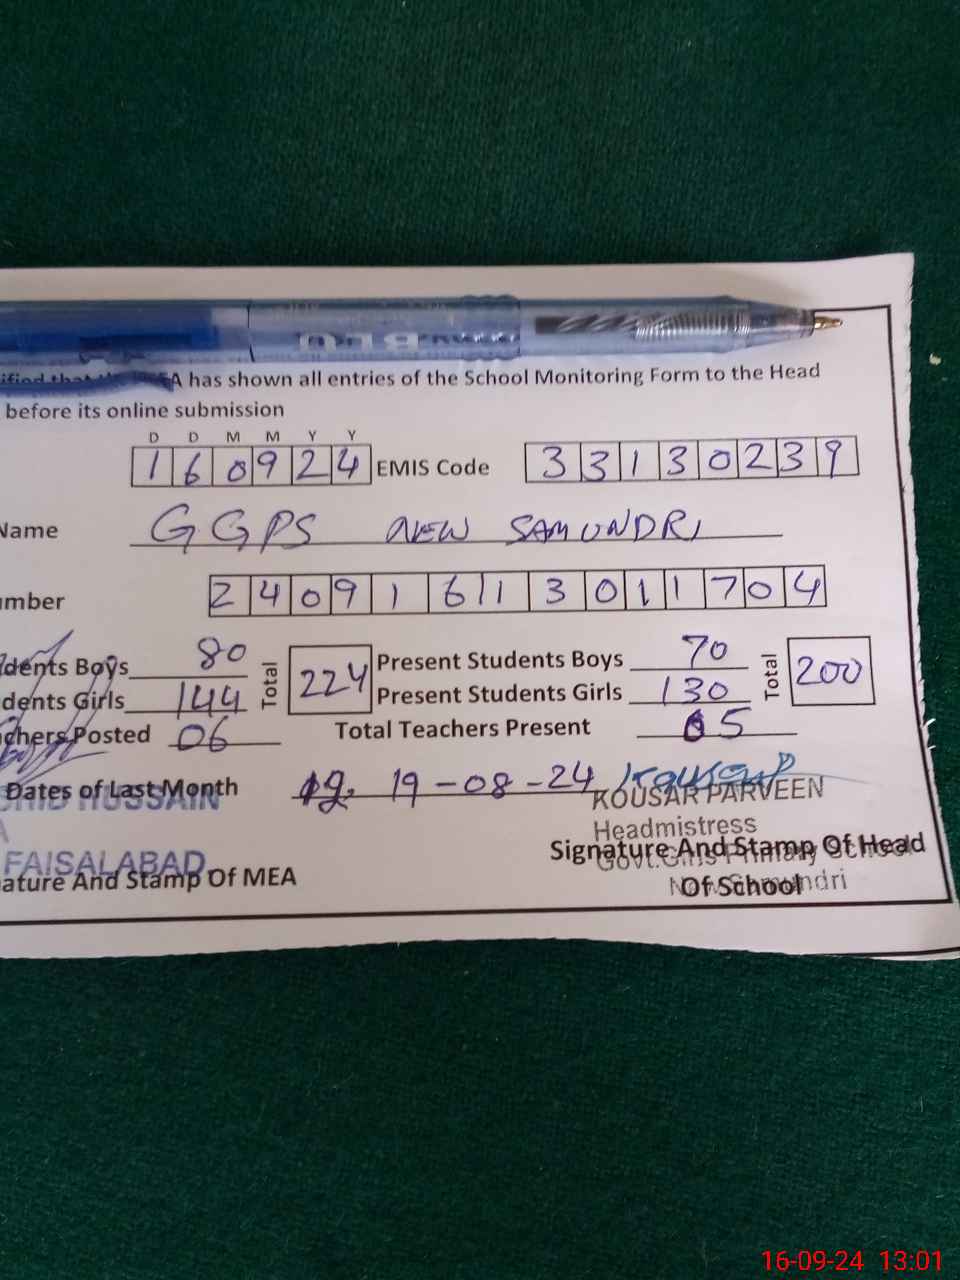 A has shown all entries of the School Monitoring Form to the Head
before its online submission
D D M M Y Y
1 6 0 9 2 4 EMIS Code 3 3 1 3 0 2 3 9
Name GGPS NEW SAMUNDRI
umber 2 4 0 9 1 6 1 1 3 0 1 1 7 0 4
dents Boys 80 Total 224 Present Students Boys 70 Total 200
dents Girls 144 Present Students Girls 130
chers Posted 06 Total Teachers Present 05
Dates of Last Month 19-08-24
HUSSAIN
KOUSAR PARVEEN
Headmistress
Govt. Girls Primary School
New Samundri
FAISALABAD.
ature And Stamp Of MEA
Signature And Stamp Of Head
Of School
16-09-24 13:01